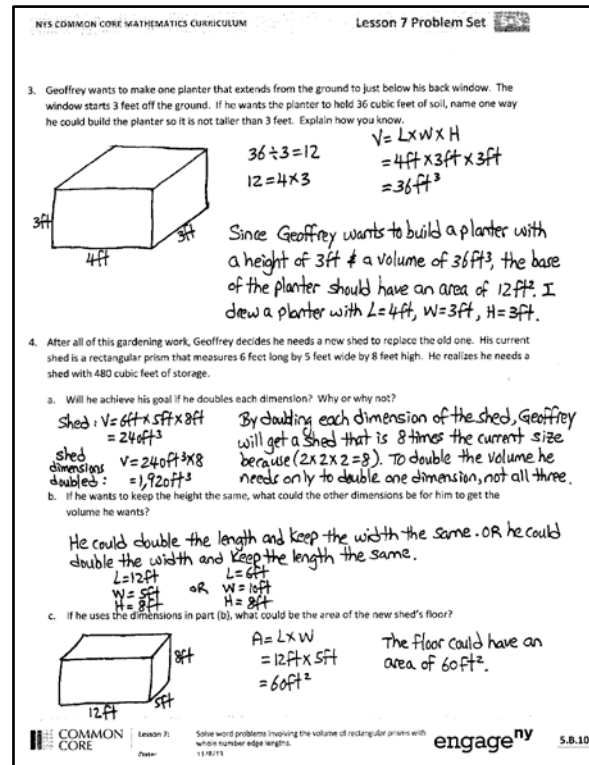 NYS COMMON CORE MATHEMATICS CURRICULUM
Lesson 7 Problem Set
3. Geoffrey wants to make one planter that extends from the ground to just below his back window. The
window starts 3 feet off the ground. If he wants the planter to hold 36 cubic feet of soil, name one way
he could build the planter so it is not taller than 3 feet. Explain how you know.
36÷3=12
12=4×3
V=L×W×H
=4ft×3ft×3ft
=36ft³
3ft
4ft
3ft
Since Geoffrey wants to build a planter with
a height of 3ft & a volume of 36ft³, the base
of the planter should have an area of 12ft². I
drew a planter with L=4ft, W=3ft, H=3ft.
4. After all of this gardening work, Geoffrey decides he needs a new shed to replace the old one. His current
shed is a rectangular prism that measures 6 feet long by 5 feet wide by 8 feet high. He realizes he needs a
shed with 480 cubic feet of storage.
a. Will he achieve his goal if he doubles each dimension? Why or why not?
Shed: V=6ft×5ft×8ft
= 240ft³
shed dimensions doubled: V=240ft³×8
=1,920ft³
By doubling each dimension of the shed, Geoffrey
will get a shed that is 8 times the current size
because (2×2×2=8). To double the volume he
needs only to double one dimension, not all three.
b. If he wants to keep the height the same, what could the other dimensions be for him to get the
volume he wants?
He could double the length and keep the width the same. OR he could
double the width and keep the length the same.
L=12ft
W=5ft
H=8ft
OR
L=6ft
W=10ft
H=8ft
c. If he uses the dimensions in part (b), what could be the area of the new shed's floor?
8ft
5ft
12ft
A=L×W
=12ft×5ft
=60ft²
The floor could have an
area of 60ft².
COMMON
CORE
Lesson 7:
Solve word problems involving the volume of rectangular prisms with
whole number edge lengths.
engageny
5.B.10